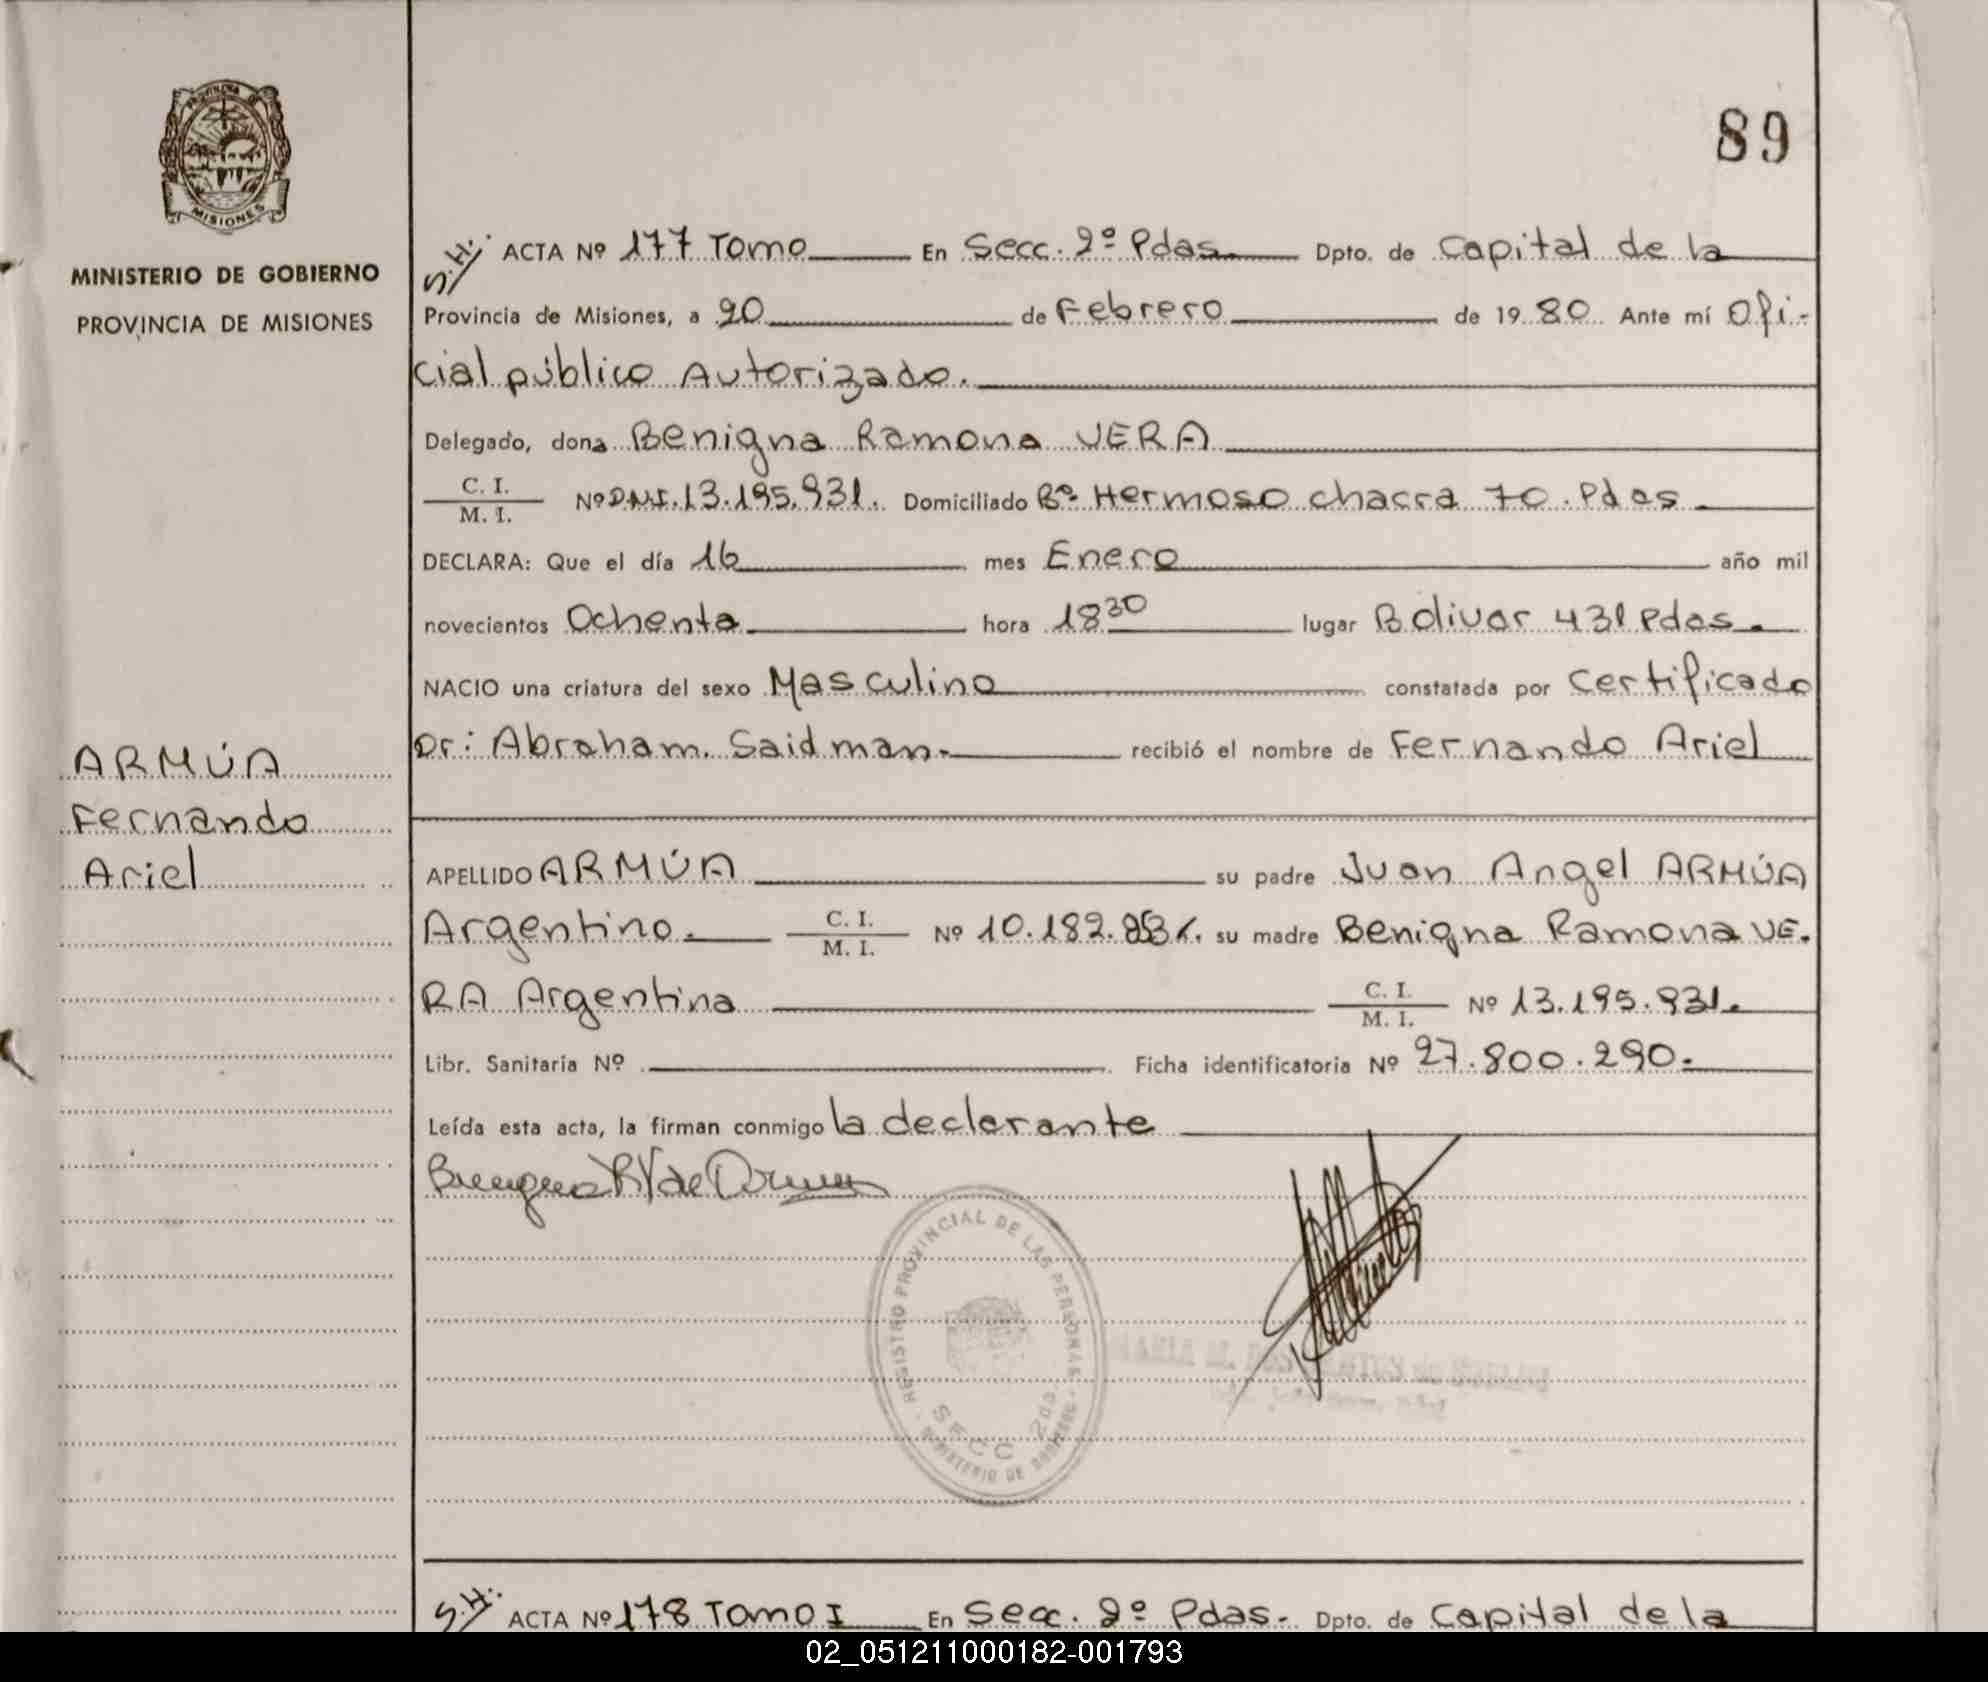 PROVINCIA DE
MISIONES
MINISTERIO DE GOBIERNO
PROVINCIA DE MISIONES
89
S.H. ACTA Nº 177 Tomo En Secc. 2º Pdas. Dpto. de Capital de la
Provincia de Misiones, a 20 de Febrero de 19 80 Ante mí Ofi-
cial público Autorizado.
Delegado, dona Benigna Ramona VERA
C. I.
M. I.
Nº D.N.I. 13.195.931. Domiciliado Bº Hermoso chacra 70. Pdas
DECLARA: Que el día 16 mes Enero año mil
novecientos Ochenta hora 18 30 lugar Bolivar 431 Pdas.
NACIO una criatura del sexo Masculino constatada por Certificado
Dr: Abraham. Saidman. recibió el nombre de Fernando Ariel
ARMÚA
Fernando
Ariel
APELLIDO ARMÚA su padre Juan Angel ARMÚA
Argentino. C. I. M. I. Nº 10.182. su madre Benigna Ramona VE.
RA Argentina C. I. M. I. Nº 13.195.931.
Libr. Sanitaria Nº Ficha identificatoria Nº 27.800.290.
Leída esta acta, la firman conmigo la declarante
REGISTRO PROVINCIAL DE LAS PERSONAS
SECC 2da.
MINISTERIO DE GOBIERNO
S.H. ACTA Nº 178 Tomo I En Secc. 2º Pdas. Dpto. de Capital de la
02_051211000182-001793